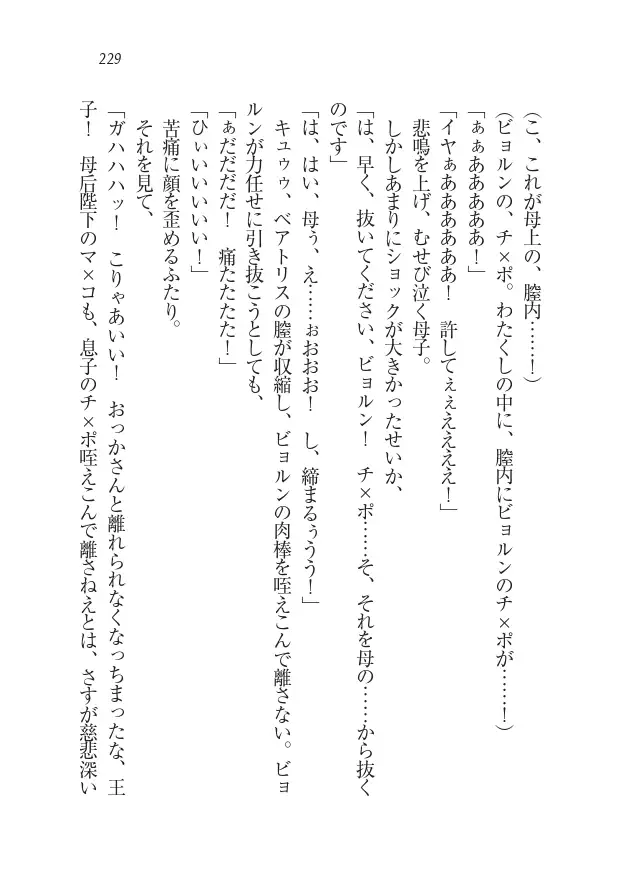 229
(こ、これが母上の、膣内……！)
(ビョルンの、チ×ポ。わたくしの中に、膣内にビョルンのチ×ポが……！)
「ぁぁあああああ！」
「イヤぁああああああ！　許してぇぇええええ！」
悲鳴を上げ、むせび泣く母子。
しかしあまりにショックが大きかったせいか、
「は、早く、抜いてください、ビョルン！　チ×ポ……そ、それを母の……から抜く
のです」
「は、はい、母ぅ、え……ぉおおお！　し、締まるぅうう！」
キュゥゥ、ベアトリスの膣が収縮し、ビョルンの肉棒を咥えこんで離さない。ビョ
ルンが力任せに引き抜こうとしても、
「ぁだだだだ！　痛たたたた！」
「ひぃいいいいい！」
苦痛に顔を歪めるふたり。
それを見て、
「ガハハハッ！　こりゃあいい！　おっかさんと離れられなくなっちまったな、王
子！　母后陛下のマ×コも、息子のチ×ポ咥えこんで離さねえとは、さすが慈悲深い